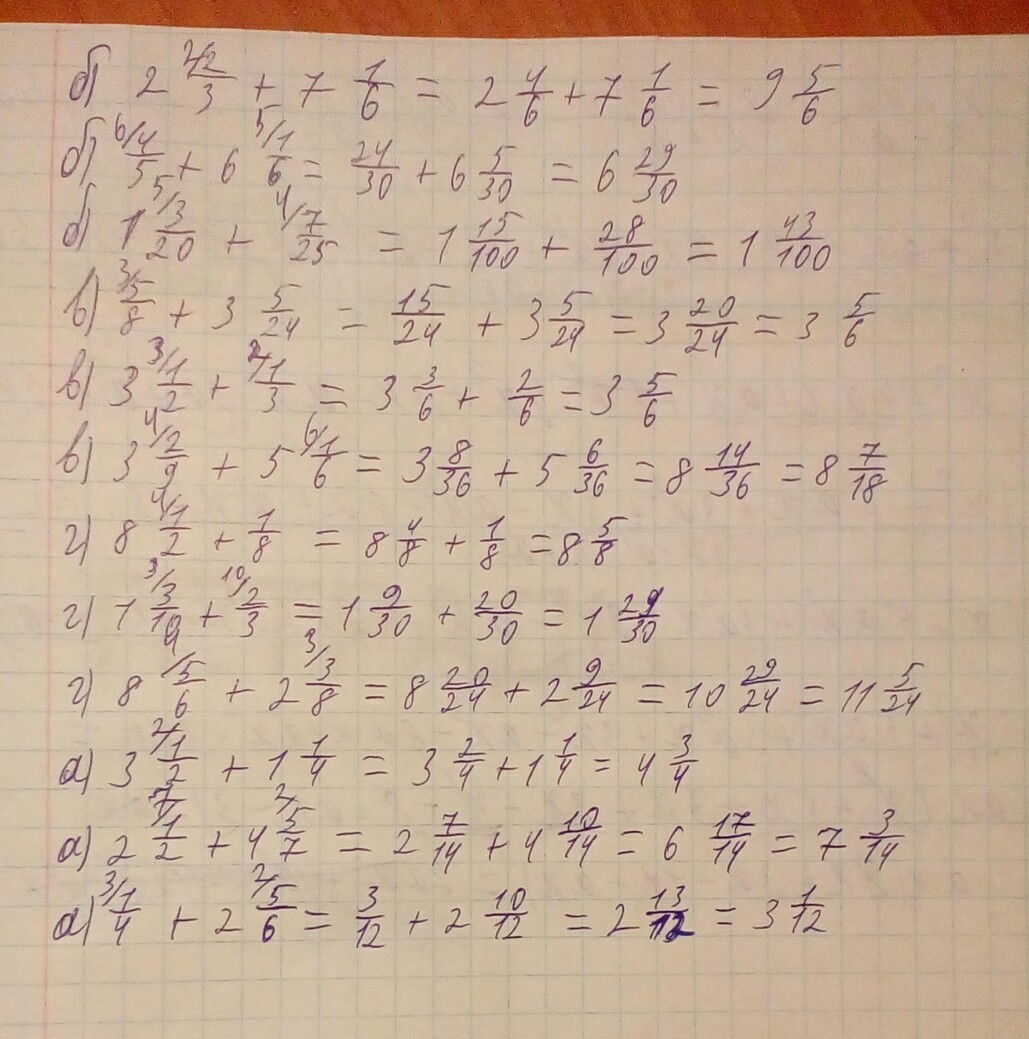 б) 2 ²/2/3 + 7 1/6 = 2 4/6 + 7 1/6 = 9 5/6
б) ⁶/4/5 + 6 ⁵/1/6 = 24/30 + 6 5/30 = 6 29/30
б) 1 ⁵/3/20 + ⁴/7/25 = 1 15/100 + 28/100 = 1 43/100
в) ³/5/8 + 3 5/24 = 15/24 + 3 5/24 = 3 20/24 = 3 5/6
в) 3 ³/1/2 + ²/1/3 = 3 3/6 + 2/6 = 3 5/6
в) 3 ⁴/2/9 + 5 ⁶/1/6 = 3 8/36 + 5 6/36 = 8 14/36 = 8 7/18
г) 8 ⁴/1/2 + 1/8 = 8 4/8 + 1/8 = 8 5/8
г) 1 ³/3/10 + ¹⁰/2/3 = 1 9/30 + 20/30 = 1 29/30
г) 8 ⁴/5/6 + 2 ³/3/8 = 8 20/24 + 2 9/24 = 10 29/24 = 11 5/24
а) 3 ²/1/2 + 1 1/4 = 3 2/4 + 1 1/4 = 4 3/4
а) 2 ⁷/1/2 + 4 ²/5/7 = 2 7/14 + 4 10/14 = 6 17/14 = 7 3/14
а) ³/1/4 + 2 ²/5/6 = 3/12 + 2 10/12 = 2 13/12 = 3 1/12